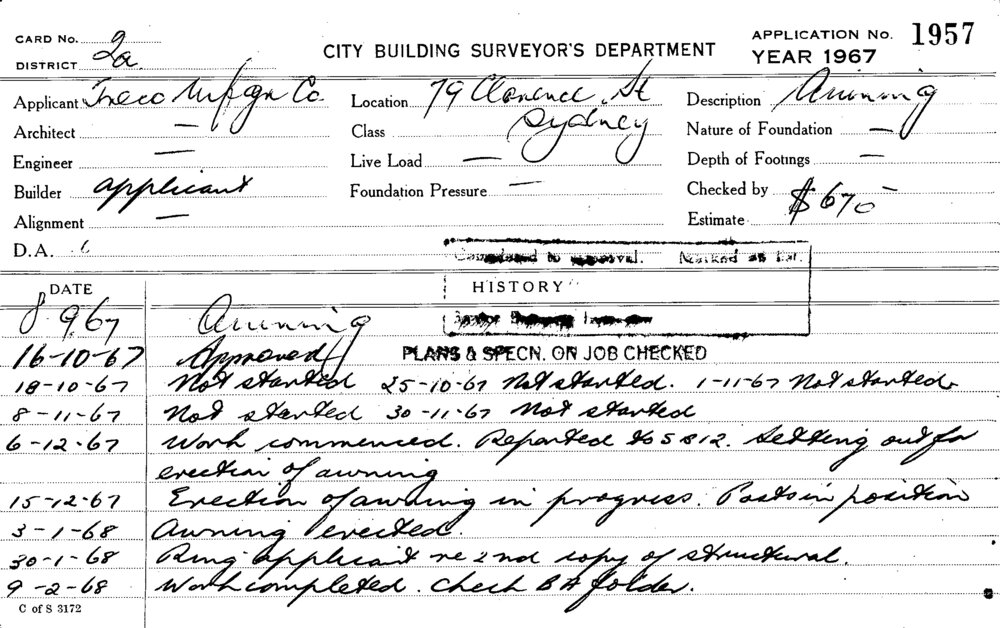 CARD No. 2
DISTRICT 2a.
CITY BUILDING SURVEYOR'S DEPARTMENT
APPLICATION No. 1957
YEAR 1967
Applicant Treco Mfgn Co. Location 79 Clarence St Description Awning
Architect — Class Sydney Nature of Foundation —
Engineer — Live Load — Depth of Footings —
Builder applicant Foundation Pressure — Checked by
Alignment — Estimate $670 –
D.A.
Completed to approval. Marked as far.
DATE HISTORY
8 9 67 Awning
16-10-67 Approved PLANS & SPECN. ON JOB CHECKED
18-10-67 Not started 25-10-67 Not started. 1-11-67 Not started
8-11-67 Not started 30-11-67 Not started
6-12-67 Work commenced. Reported to S B 12. Setting out for
erection of awning
15-12-67 Erection of awning in progress. Posts in position
3-1-68 Awning erected.
30-1-68 Ring applicant re 2nd copy of structural.
9-2-68 Work completed. Check B A folder.
C of S 3172